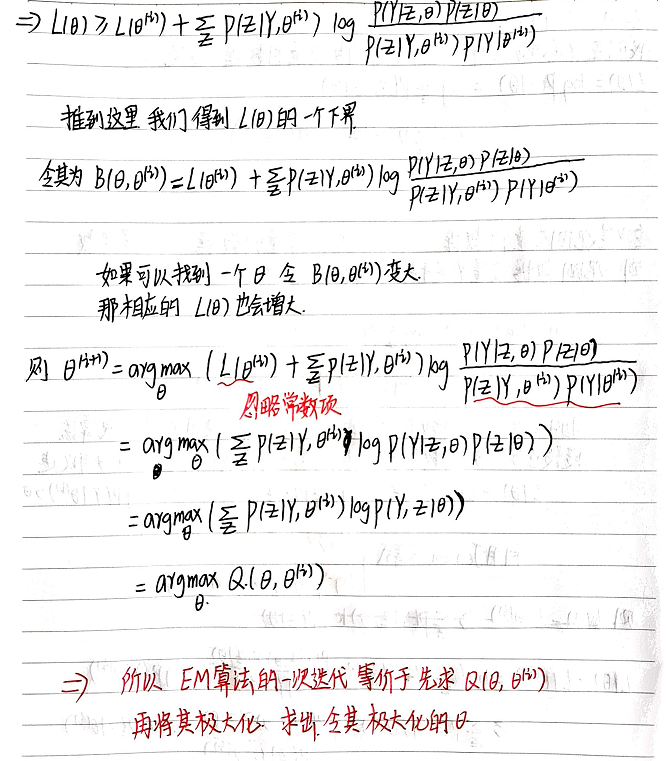 ⇒ L(θ) ≥ L(θ⁽ⁱ⁾) + Σ_Z P(Z|Y,θ⁽ⁱ⁾) log P(Y|Z,θ)P(Z|θ) / P(Z|Y,θ⁽ⁱ⁾)P(Y|θ⁽ⁱ⁾)
推到这里 我们得到 L(θ)的一个下界
令其为 B(θ,θ⁽ⁱ⁾) = L(θ⁽ⁱ⁾) + Σ_Z P(Z|Y,θ⁽ⁱ⁾) log P(Y|Z,θ)P(Z|θ) / P(Z|Y,θ⁽ⁱ⁾)P(Y|θ⁽ⁱ⁾)
如果可以找到一个θ 令 B(θ,θ⁽ⁱ⁾)变大
那相应的 L(θ)也会增大.
则 θ⁽ⁱ⁺¹⁾ = argmax_θ (L(θ⁽ⁱ⁾) + Σ_Z P(Z|Y,θ⁽ⁱ⁾) log P(Y|Z,θ)P(Z|θ) / P(Z|Y,θ⁽ⁱ⁾)P(Y|θ⁽ⁱ⁾)
忽略常数项
= argmax_θ (Σ_Z P(Z|Y,θ⁽ⁱ⁾) log P(Y|Z,θ)P(Z|θ))
= argmax_θ (Σ_Z P(Z|Y,θ⁽ⁱ⁾) log P(Y,Z|θ))
= argmax_θ. Q(θ,θ⁽ⁱ⁾)
⇒ 所以 EM算法的一次迭代 等价于先求 Q(θ,θ⁽ⁱ⁾)
再将其极大化 求出 令其极大化的θ